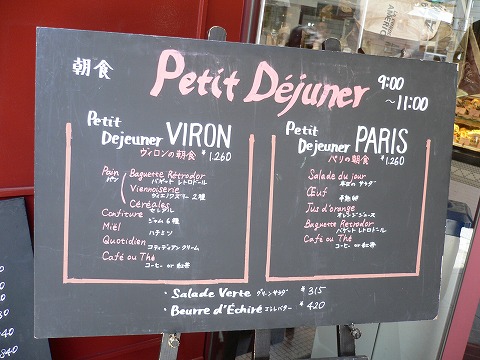 朝食
Petit Déjuner
9:00
~11:00
Petit
Dejeuner VIRON
ヴィロンの朝食 ¥1,260
Pain パン
Baguette Rétrodor
バゲット レトロドール
Viennoiserie
ヴィエノワズリー 2種
Céréales
セレアル
Confiture
ジャム 6種
Miel
ハチミツ
Quotidien
コティディアンクリーム
Café ou Thé
コーヒー or 紅茶
Petit
Dejeuner PARIS
パリの朝食 ¥1,260
Salade du jour
本日の サラダ
Œuf
半熟卵
Jus d'orange
オレンジジュース
Baguette Retrodor
バゲット レトロドール
Café ou Thé
コーヒー or 紅茶
・Salade Verte グリーンサラダ ¥315
・Beurre d'Échiré エシレバター ¥420